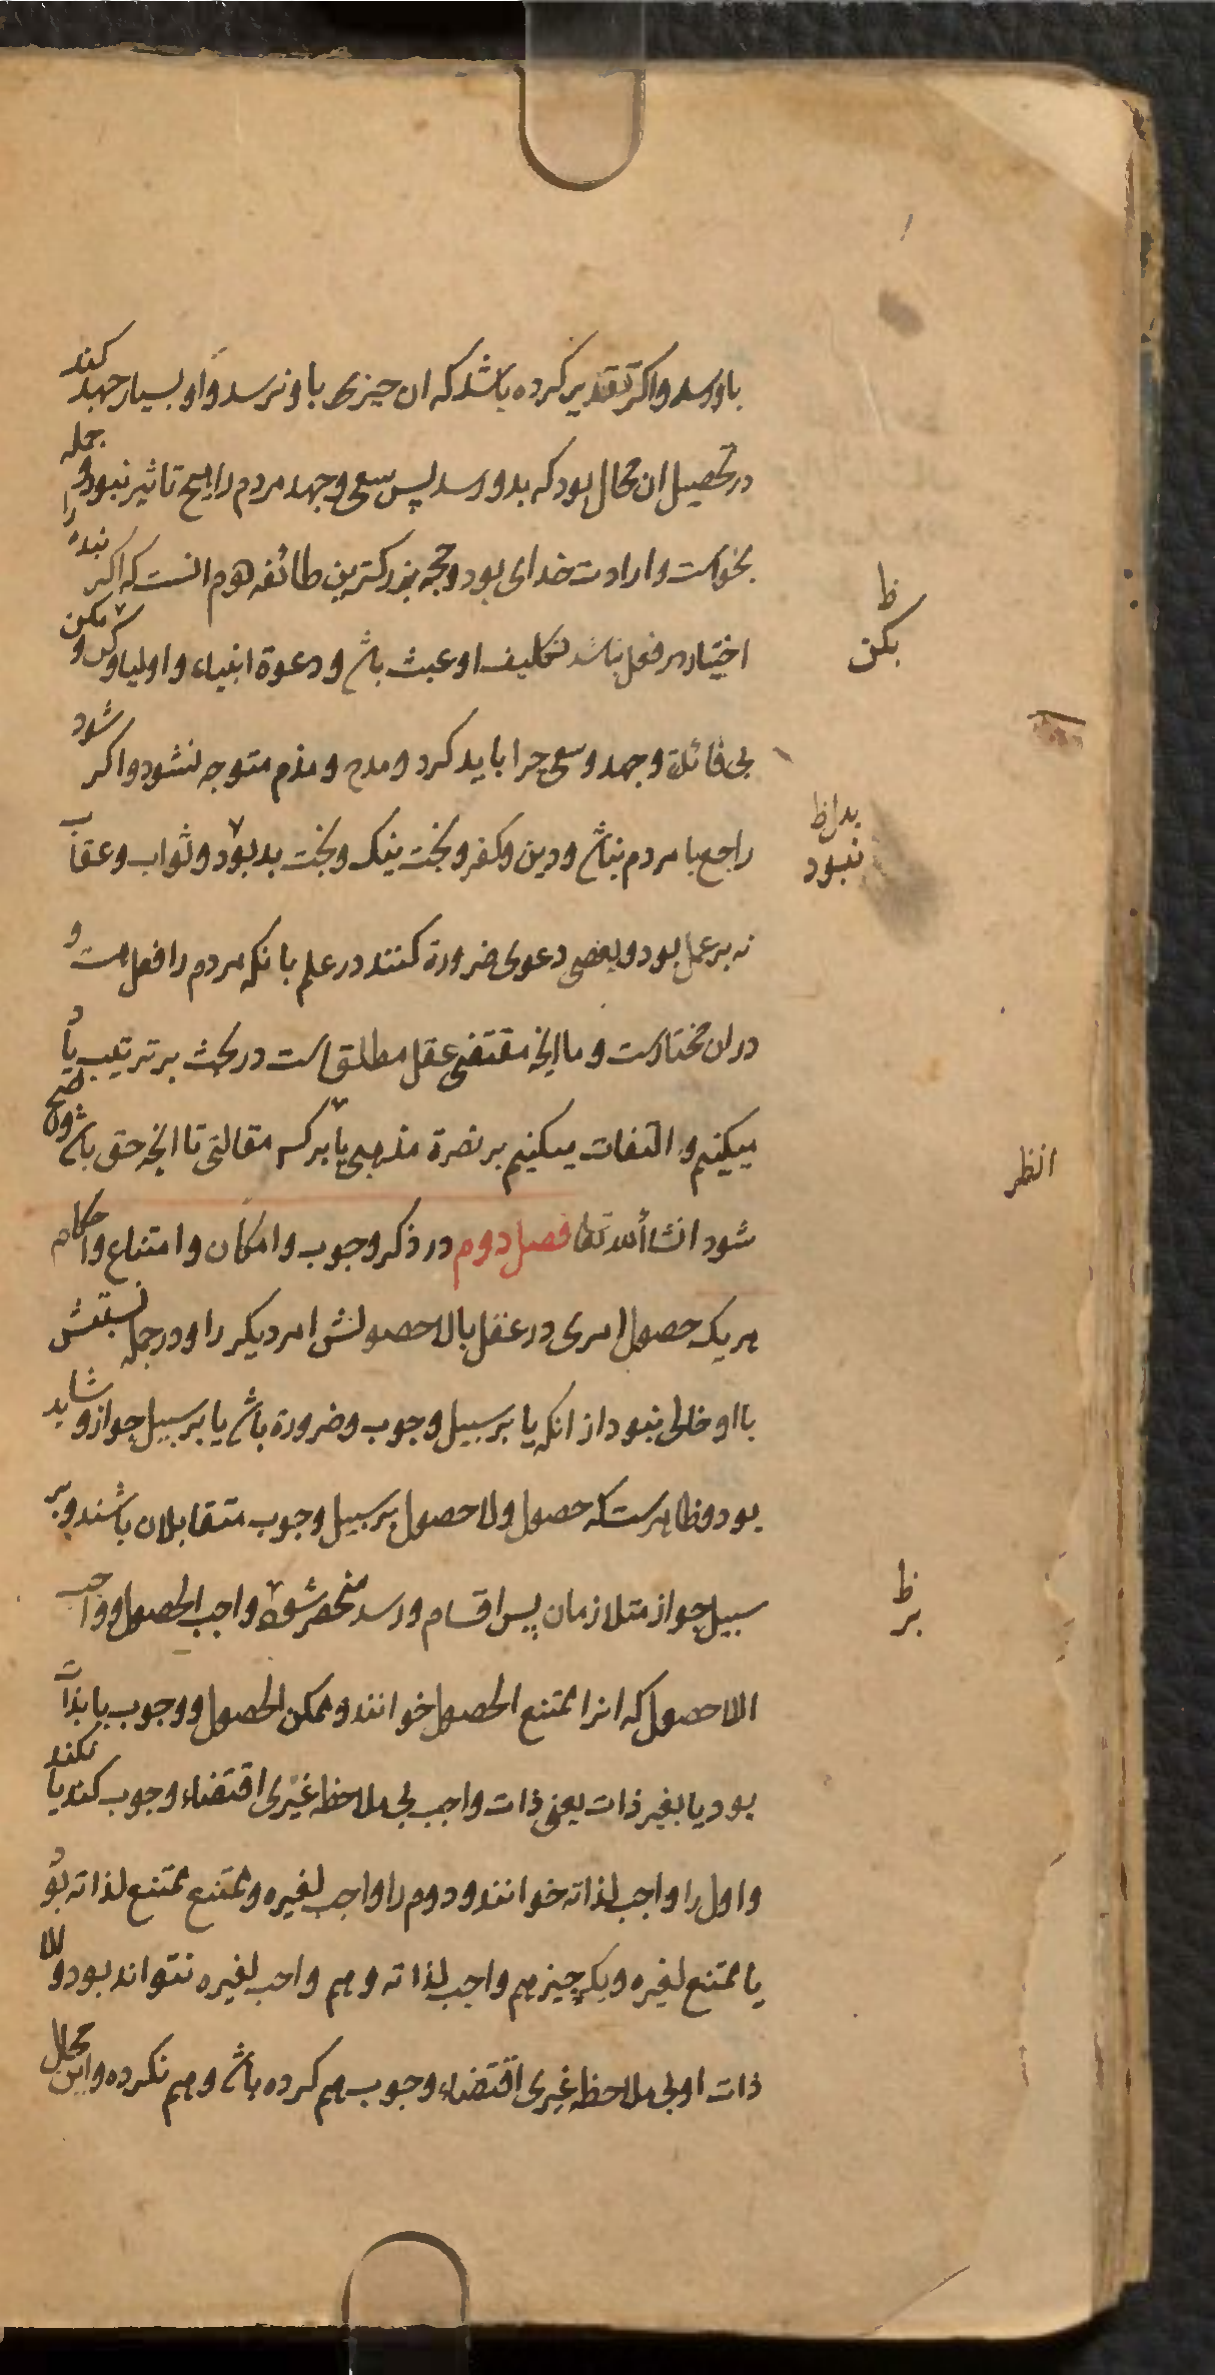 باو رسد و اکر تقدیر کرده باشد که ان چیزی باو نرسد و او بسیار جهد کند
در تحصیل ان محال بود که بدو رسد پس سعی و جهد مردم را هیچ تاثیر نبود و جمله
بخواست و ارادت خدای بود و حجه بزرکترین طائفه دوم انست که اکر بنده را
اختیار در فعل نباشد تکلیف او عبث باشد و دعوة انبیاء و اولیا و کن و مکن
ظ
بکن
بی فائدة و جهد و سعی چرا باید کرد و مدح و مذم متوجه نشود و اکر شود
راجع با مردم نباشد و دین و کفر و بخت نیک و بخت بد بود و ثواب و عقاب
بدل ظ
نبود
نه بر عمل بود و بعضی دعوی ضرورة کنند در علم بانکه مردم را فعل است و
در ان مختارست و ما انچه مقتضی عقل مطلق است در بحث بر ترتیب یاد
میکنیم و التفات میکنیم بر نصرة مذهبی یا بر کسر مقالتی تا انچه حق باشد واضح
انظر
شود انشاألله تعا فصل دوم در ذکر وجوب و امکان و امتناع و احکام
هر یک حصول امری در عقل یا لا حصولش امر دیکر را و در جمله نسبتش
با او خالی نبود از انکه یا بر سبیل وجوب و ضرورة باشد یا بر سبیل جواز و شاید
بود و ظاهرست که حصول و لا حصول بر سبیل وجوب متقابلان باشند و بر
سبیل جواز متلازمان پس اقسام ورسد منحصر شود واجب الحصول و واجب
ظ
بر
اللا حصول که انرا ممتنع الحصول خوانند و ممکن الحصول و وجوب یا بذات
بود یا بغیر ذات یعنی ذات واجب بی ملاحظه غیری اقتضاء وجوب کند یا نکند
و اول را واجب لذاته خوانند و دوم را واجب لغیره و ممتنع ممتنع لذاته بود
یا ممتنع لغیره و یک چیز هم واجب لذاته و هم واجب لغیره نتواند بود و الا
ذات او بی ملاحظه غیری اقتضاء وجوب هم کرده باشد و هم نکرده و این محال